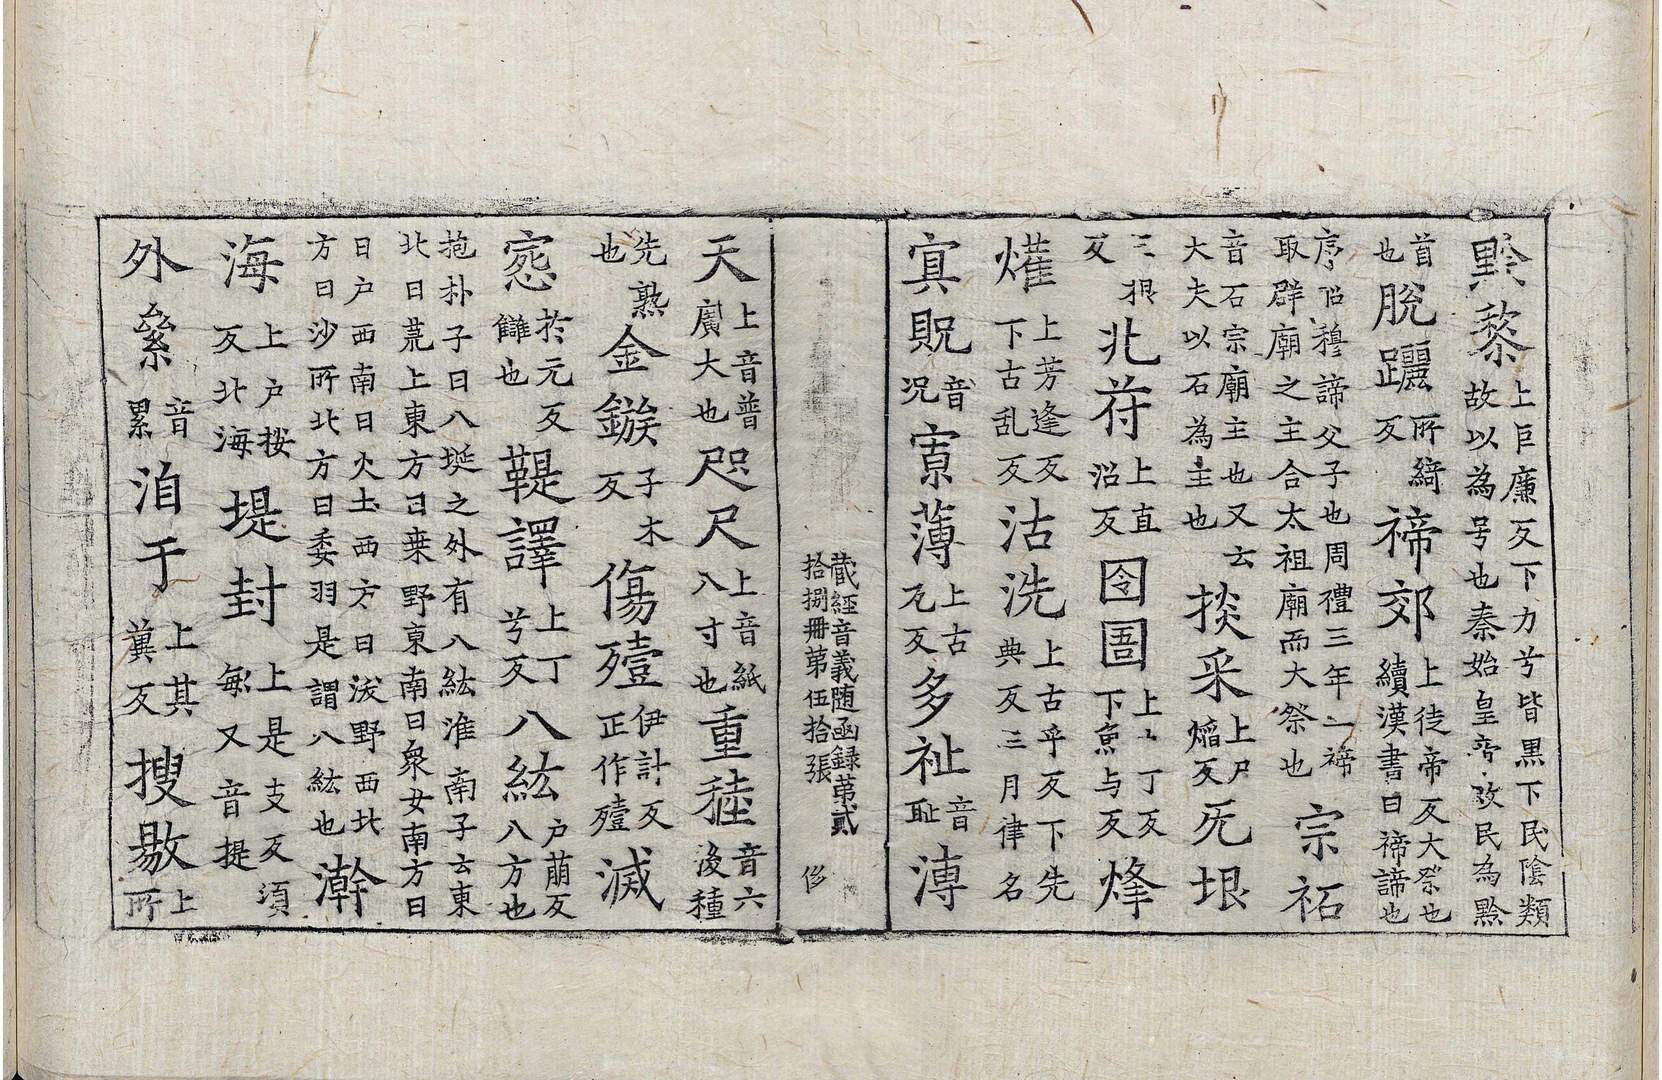 黔黎上巨廉反下力兮皆黑下民陰類故以為号也秦始皇帝改民為黔
首也脫躧所綺反禘郊上徒帝反大祭也續漢書曰禘諦也
序佋穆諦父子也周禮三年一禘取群廟之主合太祖廟而大祭也宗祏
音石宗廟主也又云大夫以石為主也掞采上尸焰反旡垠
三根反北荇上直沼反囹圄上丁反下魚与反烽
爟上芳逢反下古乱反沽洗上古乎反下先典反三月律名
寘貺音况寘薄上古瓦反多祉音耻溥
藏經音義随函録第貳拾捌冊第伍拾張 侈
天上音普廣大也咫尺上音紙八寸也重穜音六後種
先熟也金鏃子木反傷殪伊計反正作殪滅
窓於元反讎也鞮譯上丁兮反八紘户萌反八方也
抱朴子曰八埏之外有八紘淮南子云東北曰荒上東方曰桒野東南曰衆女南方曰
日户西南曰火土西方曰沃野西北方曰沙所北方曰委羽是謂八紘也瀚
海上户按反北海堤封上是支反須每又音提
外絫音累洎于上其冀反搜敭上所